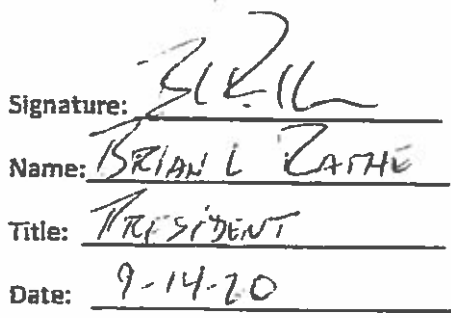 Signature:
Name: BRIAN L RATHE
Title: PRESIDENT
Date: 9-14-20